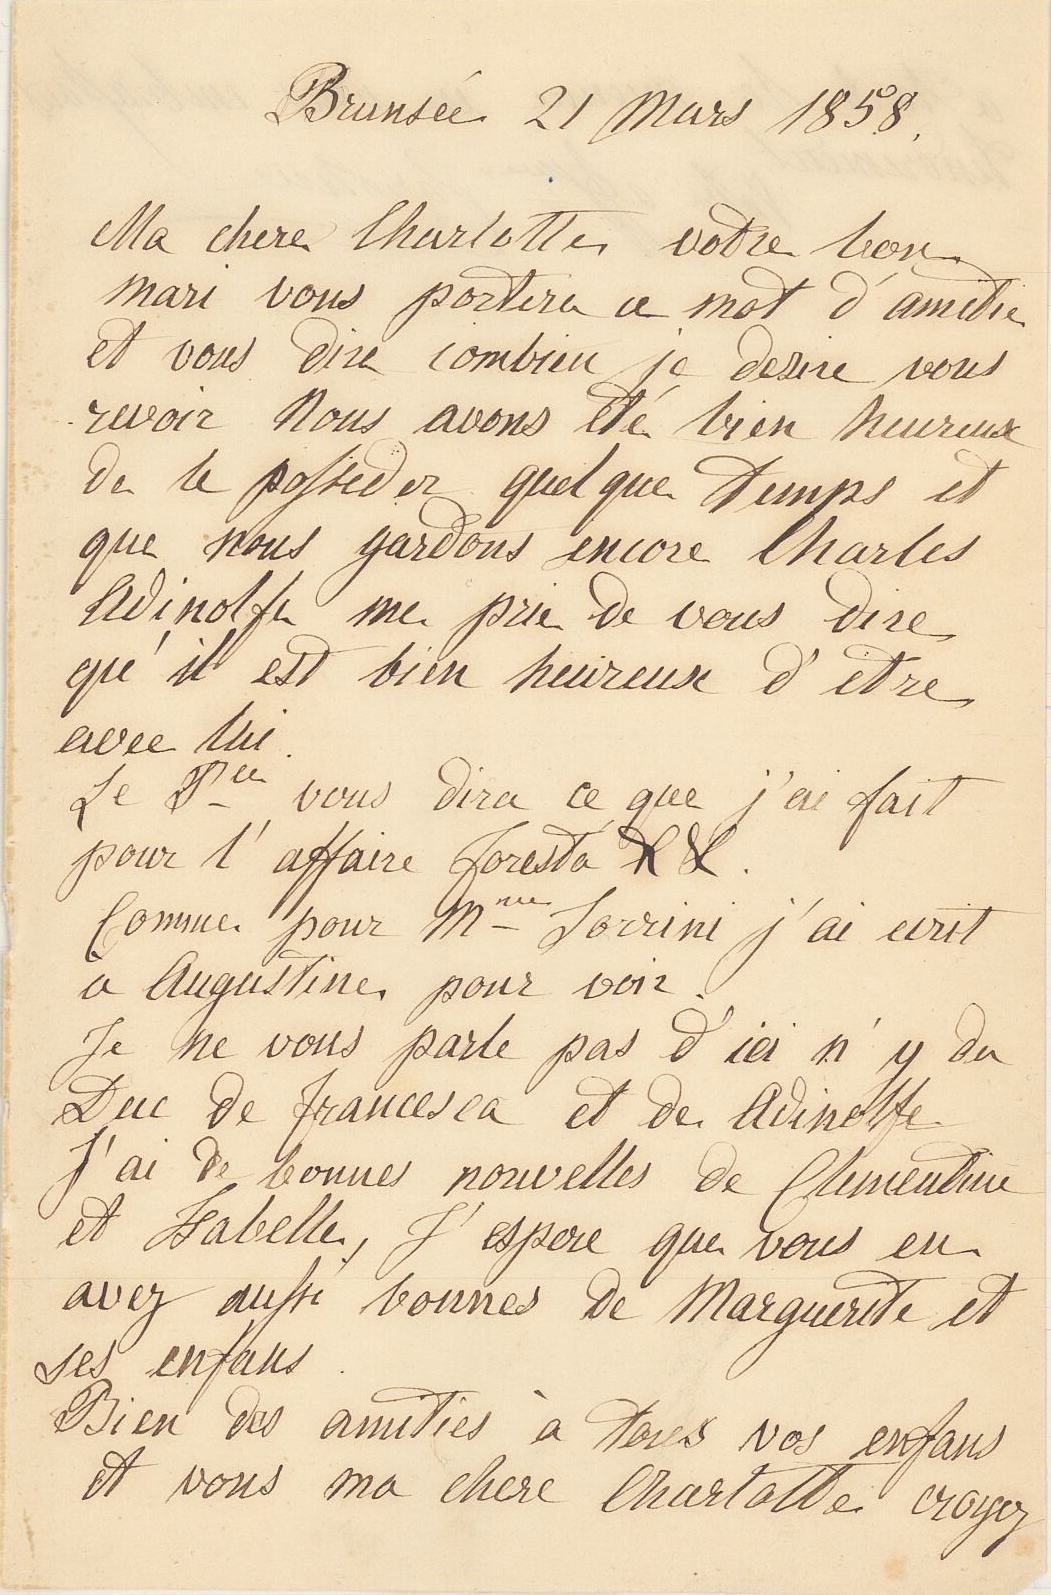 Brunsée 21 Mars 1858.
Ma chere Charlotte votre bon
mari vous portera ce mot d'amitie
et vous dire combien je desire vous
revoir Nous avons été bien heureux
de le posseder quelque temps et
que nous gardons encore Charles
Adinolfe me prie de vous dire
qu'il est bien heureux d'etre
avec lui.
Le vous dira ce que j'ai fait
pour l'affaire Foresta &&.
Comme pour Mme Sorrini j'ai ecrit
a Augustine pour voir.
Je ne vous parle pas d'ici n'y du
Duc de Francesca et de Adinolfe
J'ai de bonnes nouvelles de Clementine
et Isabelle, J'espere que vous en
avez aussi bonnes de Marguerite et
ses enfans.
Bien des amities à tous vos enfans
et vous ma chere Charlotte croyez